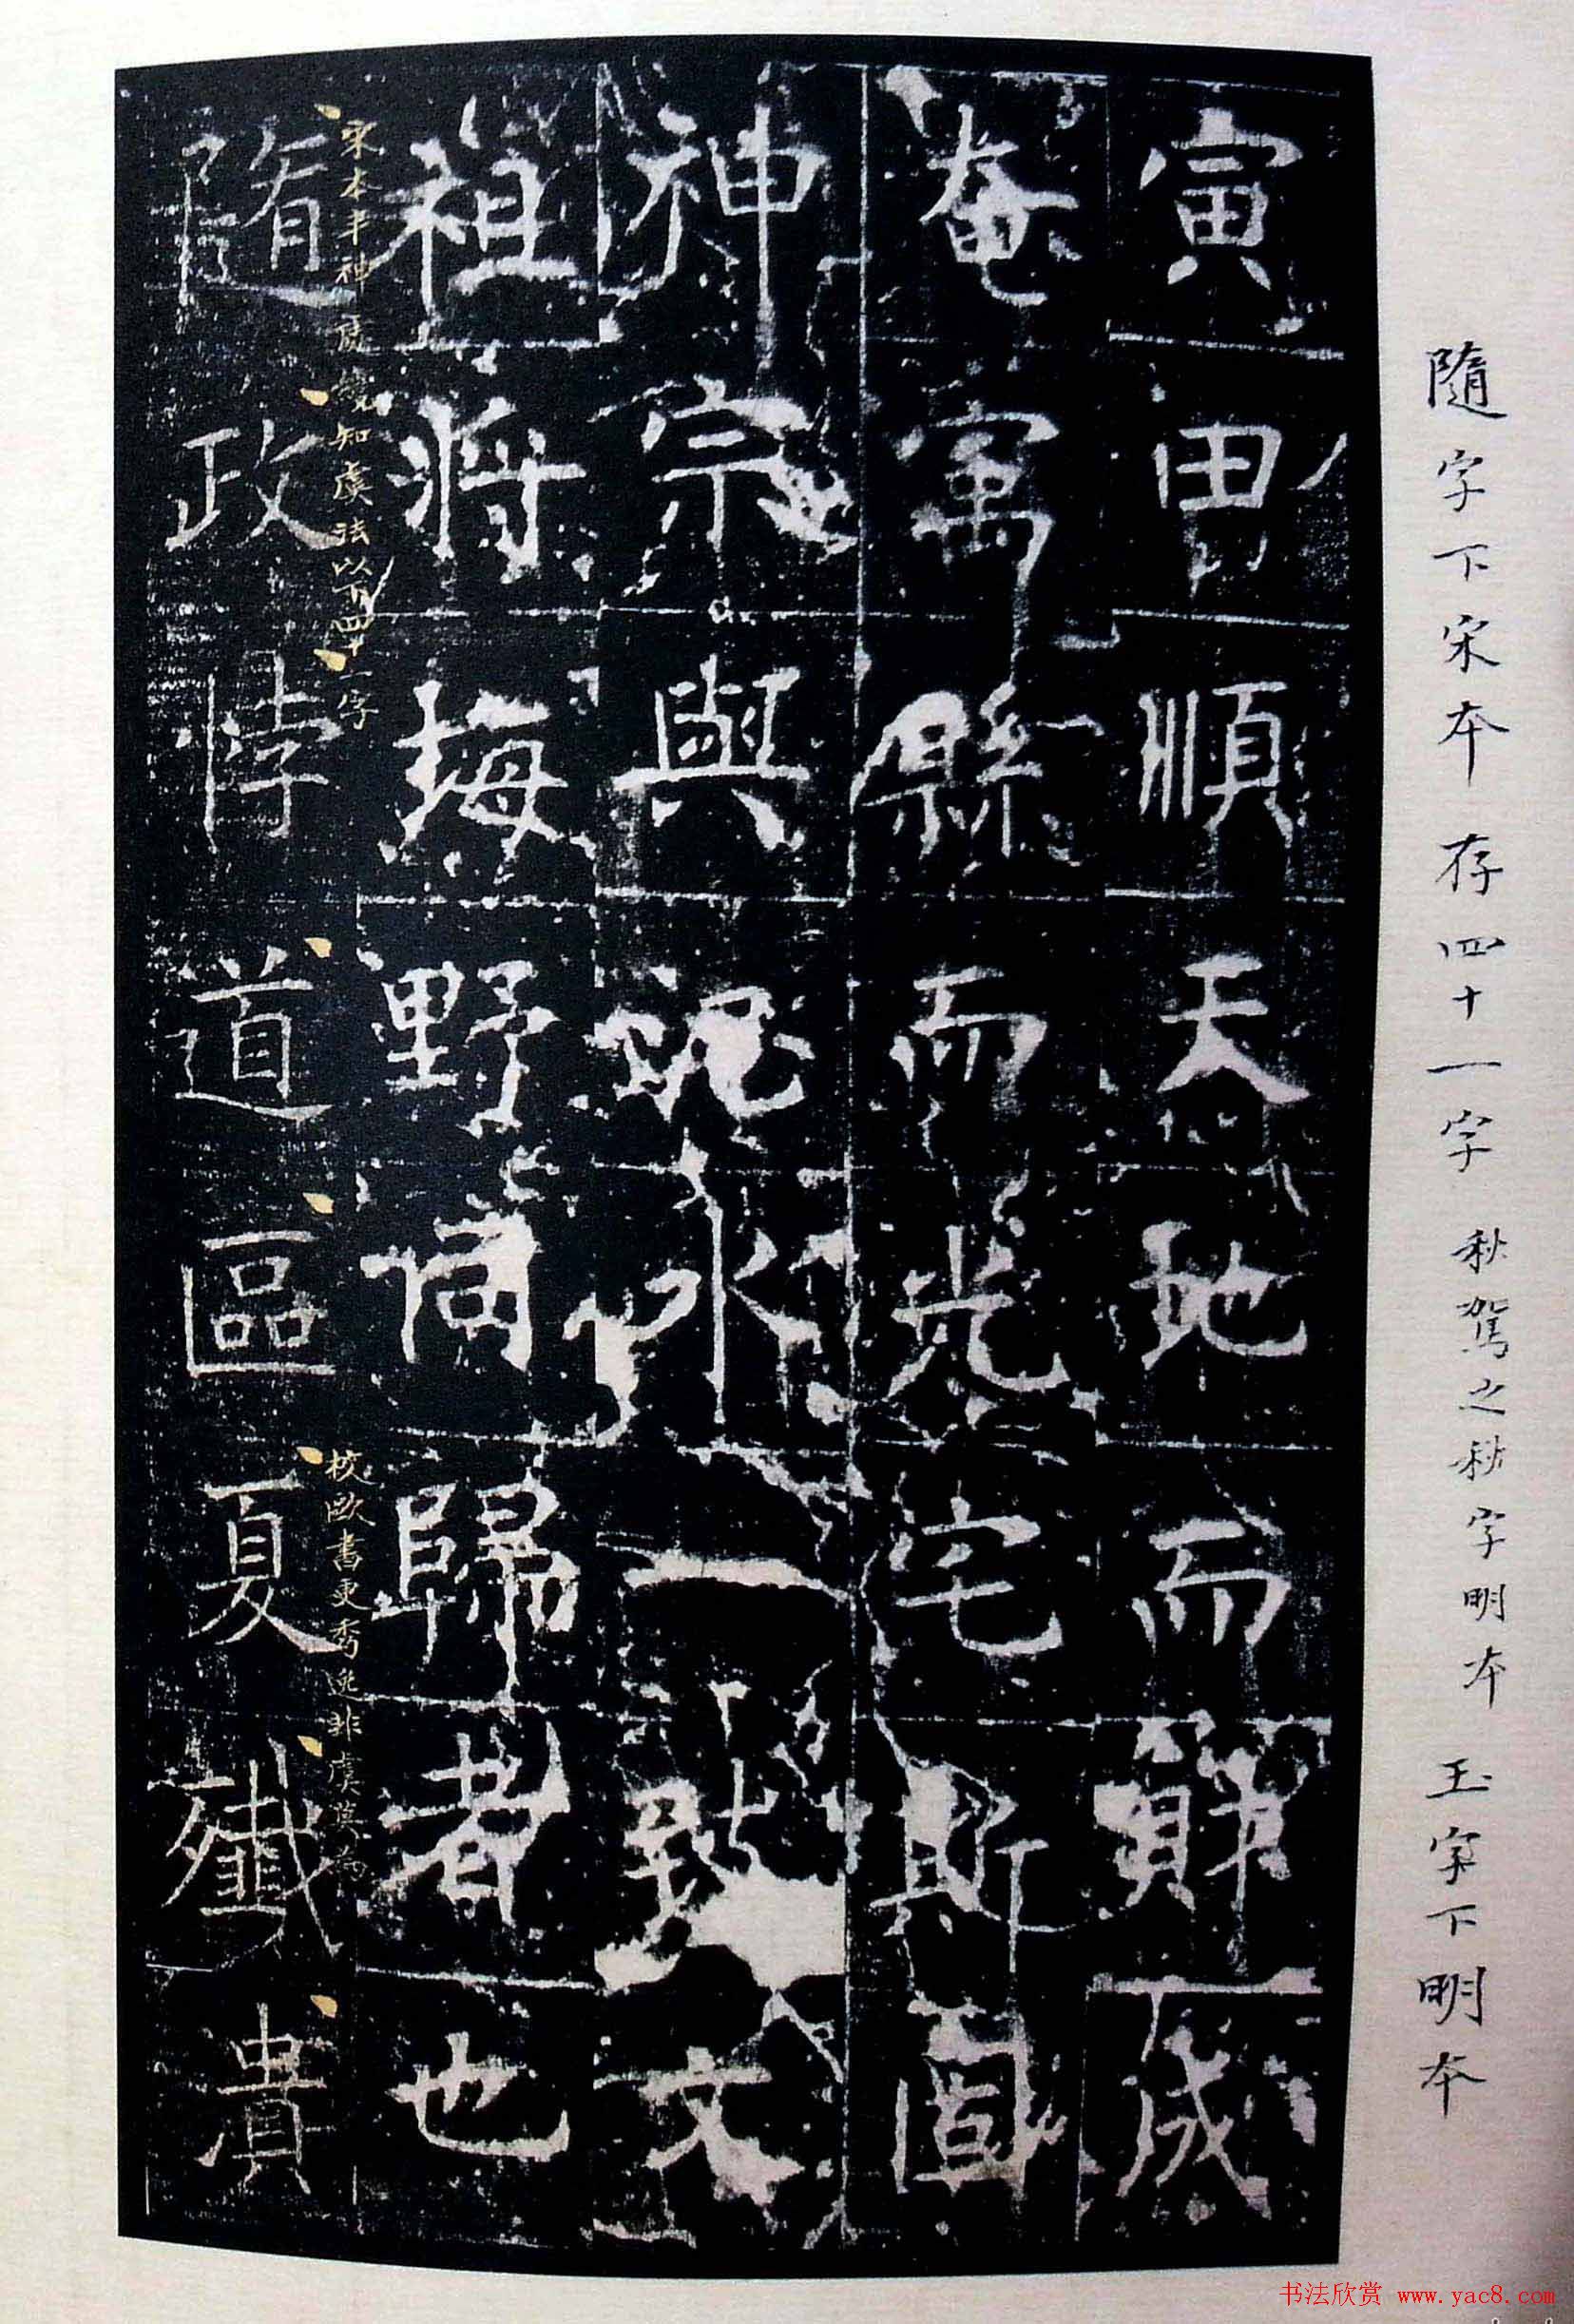 隨字下宋本存四十一字 秋駕之秋字明本 玉字下明本
寅由順天地而財成
奄寓縣而光宅斯固
神宗與水一致文
祖將坶野同歸者也
宋本丰神知虞法以下四十一字
校歐書更秀逸非虞莫為
隨政悖道區夏殲潰
书法欣赏 www.yac8.com